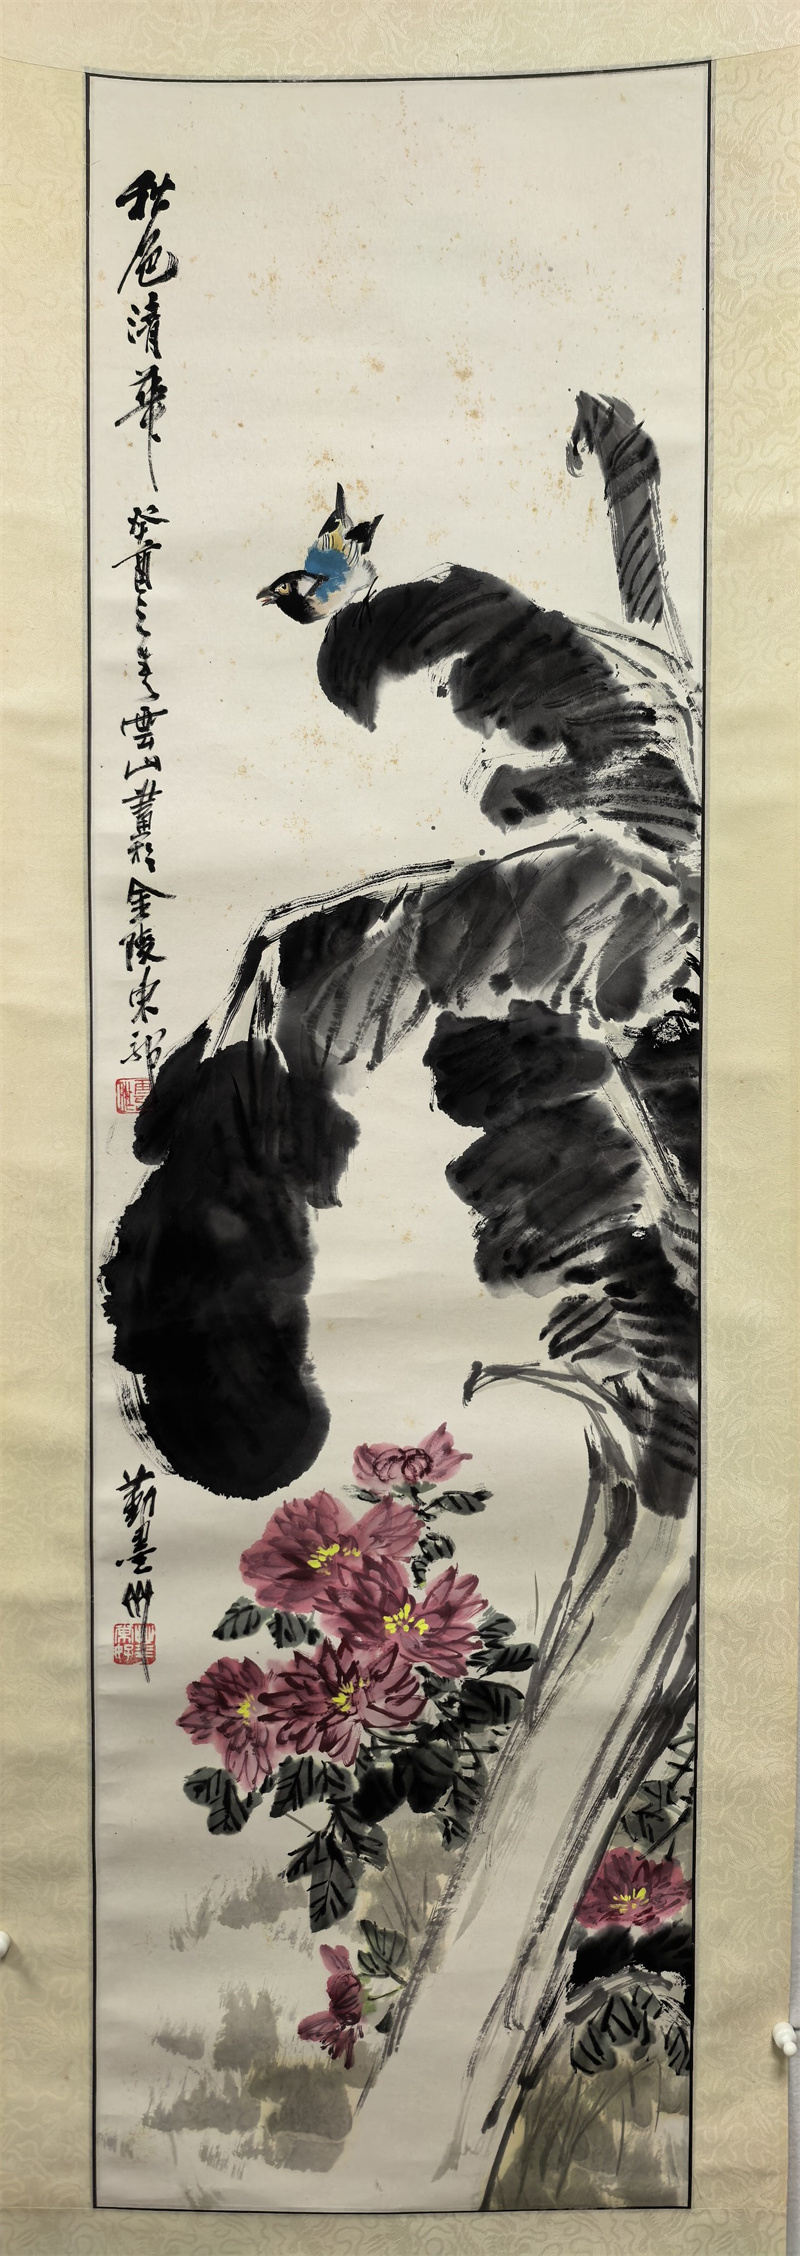 秋色清華
癸酉之春雲山畫於金陵東郊
勤墨